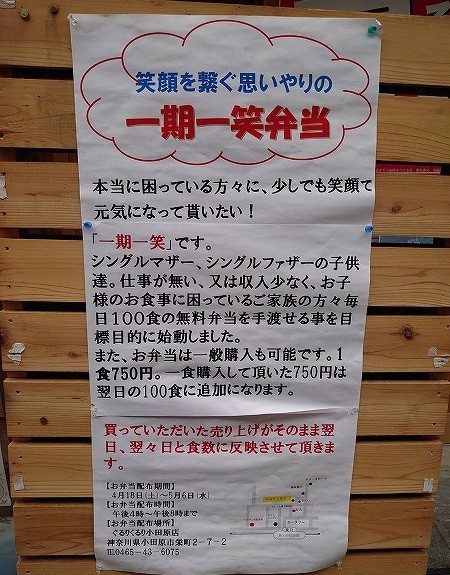 笑顔を繋ぐ思いやりの
一期一笑弁当
本当に困っている方々に、少しでも笑顔で
元気になって貰いたい！
「一期一笑」です。
シングルマザー、シングルファザーの子供
達。仕事が無い、又は収入少なく、お子
様のお食事に困っているご家族の方々毎
日100食の無料弁当を手渡せる事を目
標目的に始動しました。
また、お弁当は一般購入も可能です。1
食750円。一食購入して頂いた750円は
翌日の100食に追加になります。
買っていただいた売り上げがそのまま翌
日、翌々日と食数に反映させて頂きま
す。
【お弁当配布期間】
4月18日(土)～5月6日(水)
【お弁当配布時間】
午後4時～午後8時まで
【お弁当配布場所】
ぐるりくるり小田原店
神奈川県小田原市栄町2-7-2
℡0465-43-6075